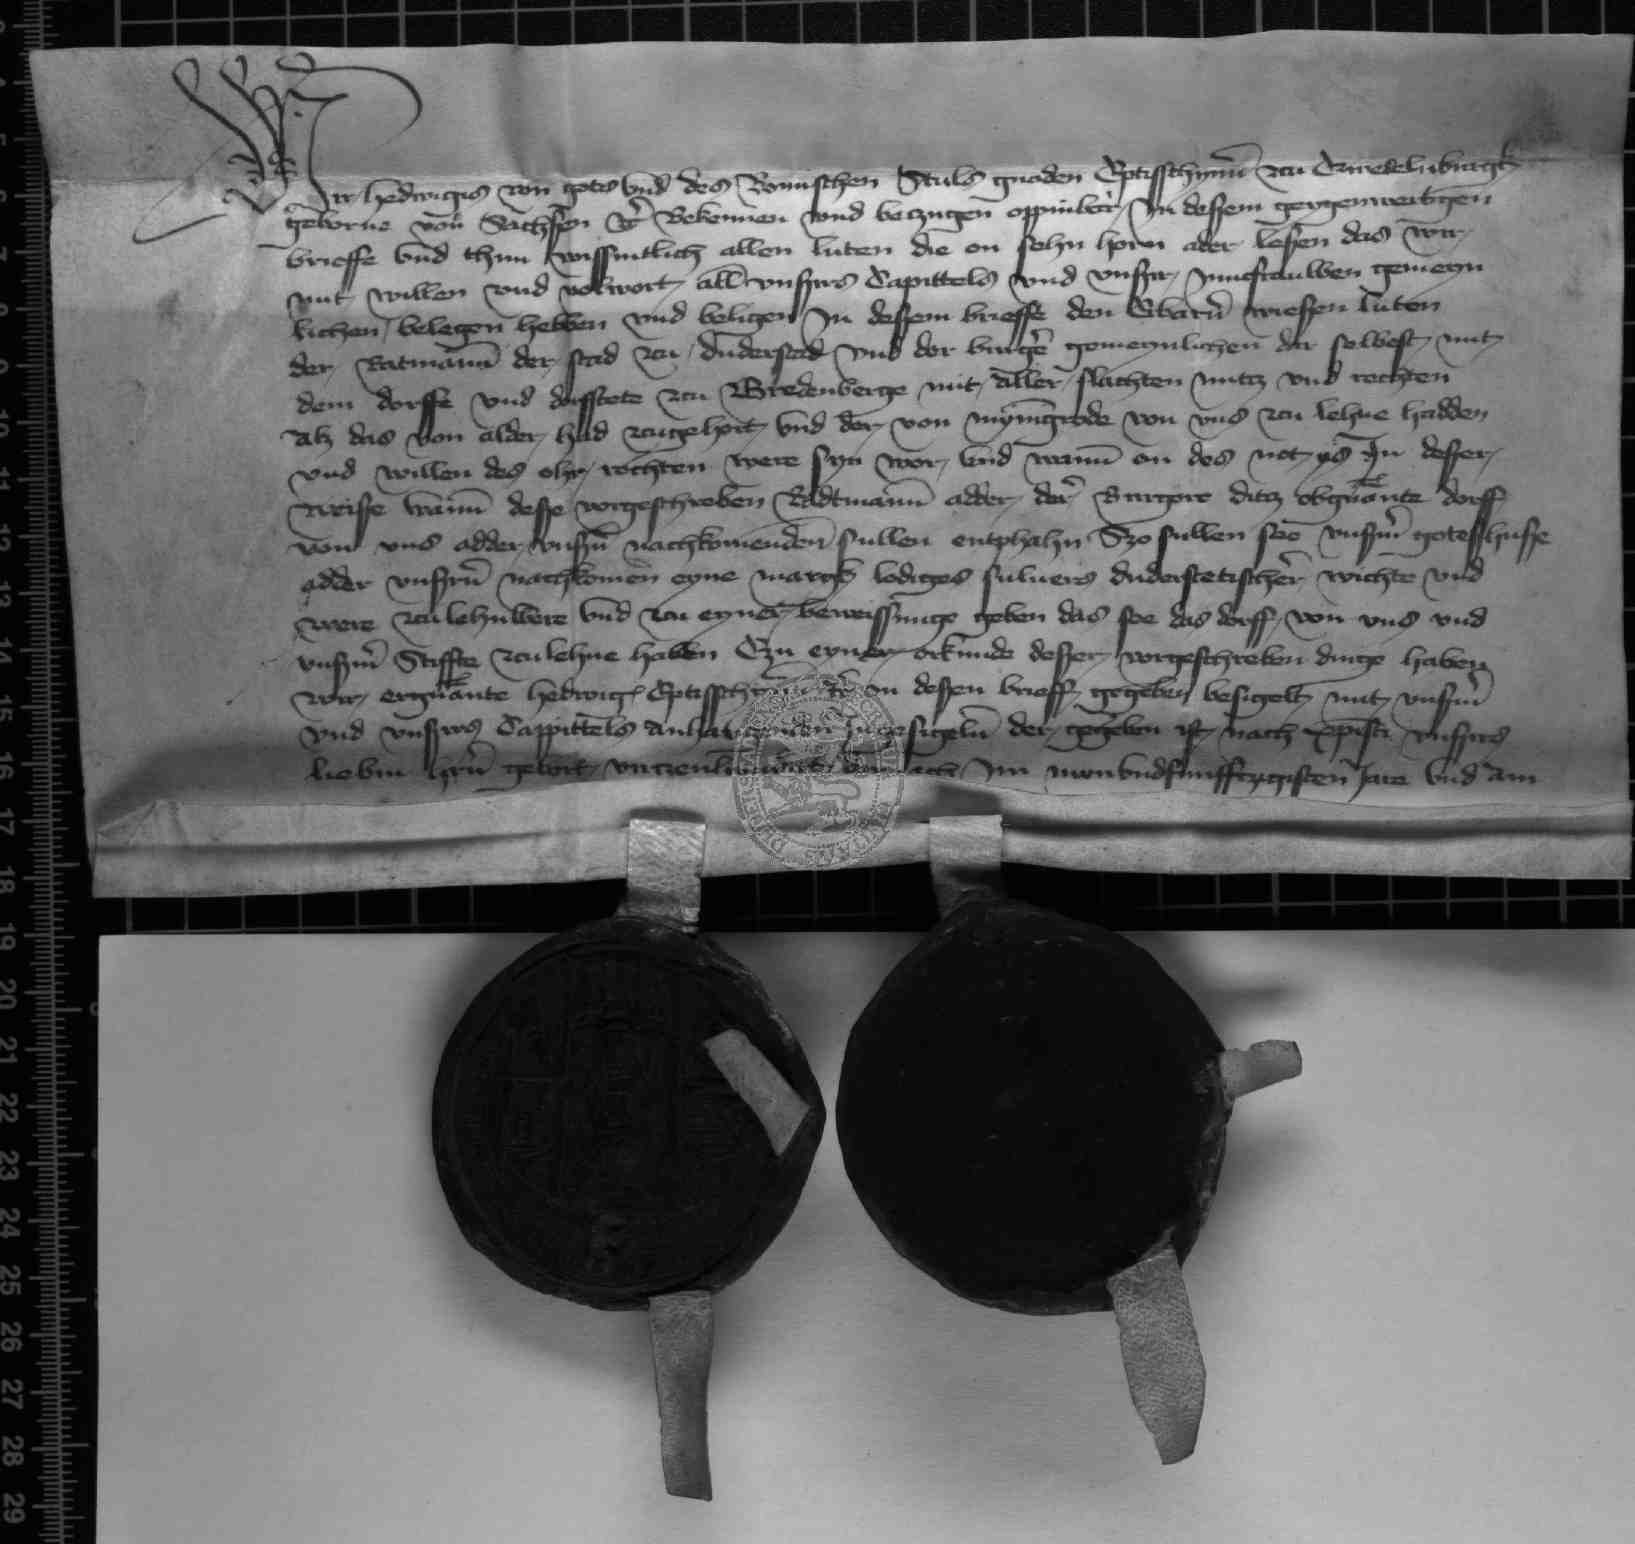 Wir hedwigis von gots vnd des Romischen Stuls gnaden Eptisschynn̄ zcu Qwedelinburgk
geborne von Sachssen etc̄ Bekennen vnd betzugen oppinbar In dessem geygenwertigen
brieffe vnd thun wissintlich allen luten die on sehn horn ader lesen das wir
mit willen vnd volwort all vnsers Capittels vnd vnser Juncfrauwen gemeyn
lichen belegen hebben vnd beligen In dessem brieffe den Erbarn̄ wiesen luten
der Ratmann̄ der stad zcu duderstad vnd der burger gemeynlichen dar selbest mit
dem dorffe vnd dorffstete zcu Bredenberge mit aller slachten nutz vnd rechten
Alz das von alder had zcugehort vnd der von myningrode von vns zcu lehne hadden
vnd willen des ohr rechten were syn wor vnd wann̄ on des not ys In desser
weisse wann̄ desse vorgeschreben Radtmann̄ adder der Burgere ditz obgnante dorff
von vns adder vnsern̄ nachkomenden sullen entphahn Szo sullen see vnserm̄ gotesshusse
adder vnsern̄ nachkomen eyne margk lodiges suluers duderstetischer wichte vnd
were zculehnwere vnd zcu eyner beweissunge geben das see das dorff von vns vnd
vnserm̄ Stiffte zculehne haben Czu eyner orkunde desser vorgeschreben dinge haben
wir ergnante hedwig Eptisschynn̄ etc̄ In dessen brieff gegeben besigelt mit vnserm̄
vnd vnsers Cappittels anhangenden Ingesigeln̄ der gegeben ist nach Cristi vnsers
liebin hern̄ gebort virtzenhundert darnach Im nwnvndfunfftzigisten Jare vnd am